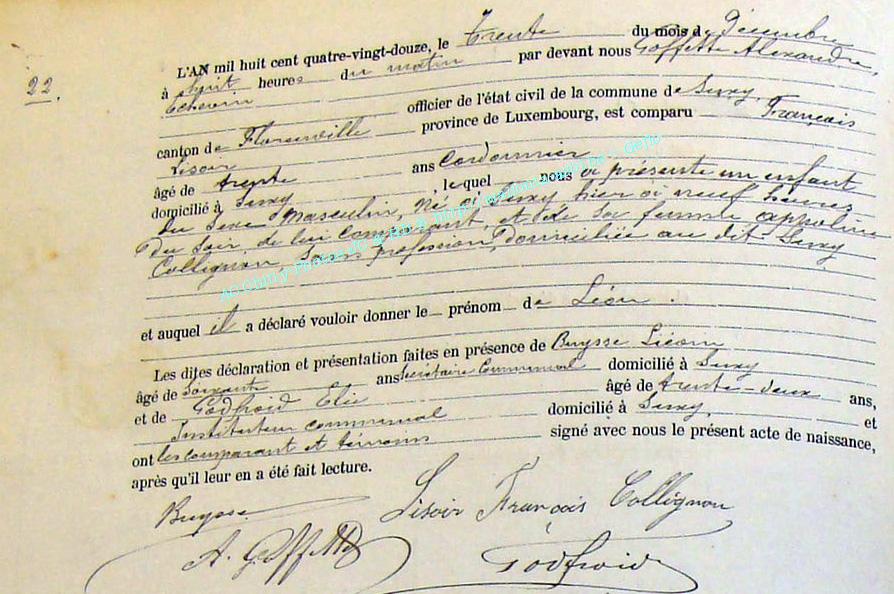 22.
L'AN mil huit cent quatre-vingt-douze, le Trente du mois de Décembre
à huit heures du matin par devant nous Goffette Alexandre,
Echevin officier de l'état civil de la commune de Suxy,
canton de Florenville province de Luxembourg, est comparu François
Lisoir
âgé de trente ans Cordonnier
domicilié à Suxy, lequel nous a présenté un enfant
du sexe Masculin, né à Suxy hier à neuf heures
du soir, de lui comparant, et de sa femme appoline
Collignon, sans profession, domiciliée au dit Suxy
et auquel il a déclaré vouloir donner le prénom de Léon.
Les dites déclaration et présentation faites en présence de Buysse
âgé de Soixante ans Secrétaire Communal domicilié à Suxy
et de Godfroid Elie âgé de trente-deux ans,
Instituteur communal domicilié à Suxy, et
ont les comparant et témoins signé avec nous le présent acte de naissance,
après qu'il leur en a été fait lecture.
Buysse Lisoir François Collignon
A. Goffette Godfroid